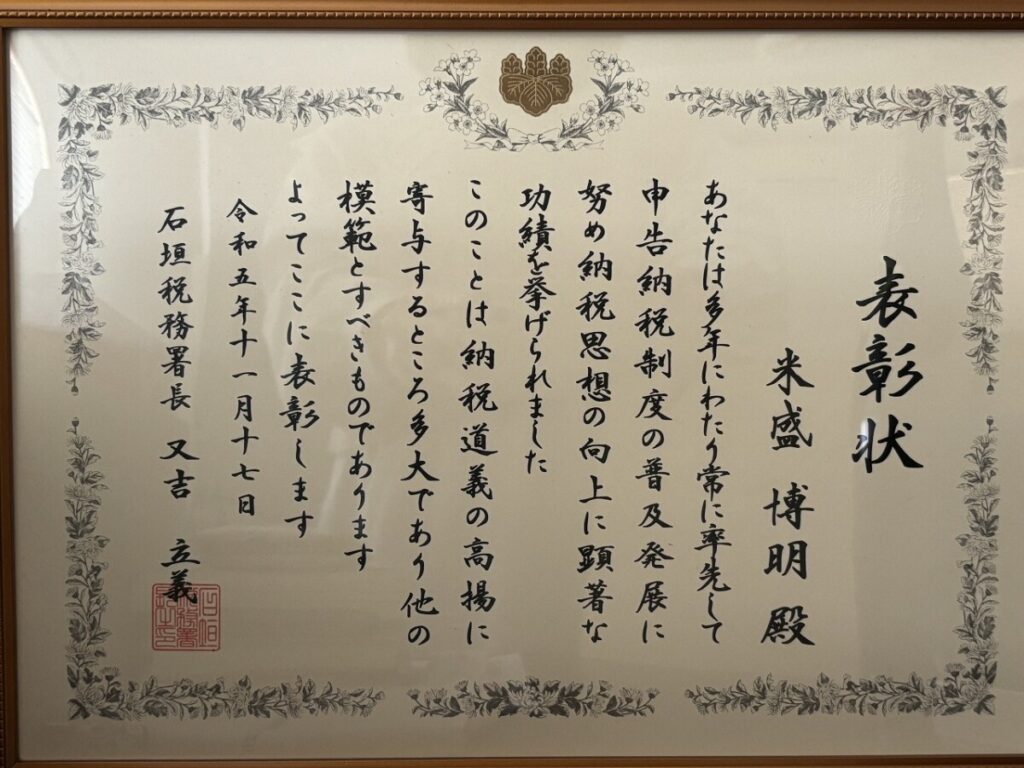 表彰状
米盛 博明 殿
あなたは多年にわたり常に率先して
申告納税制度の普及発展に
努め納税思想の向上に顕著な
功績を挙げられました
このことは納税道義の高揚に
寄与するところ多大であり他の
模範とすべきものであります
よってここに表彰します
令和五年十一月十七日
石垣税務署長 又吉 立義